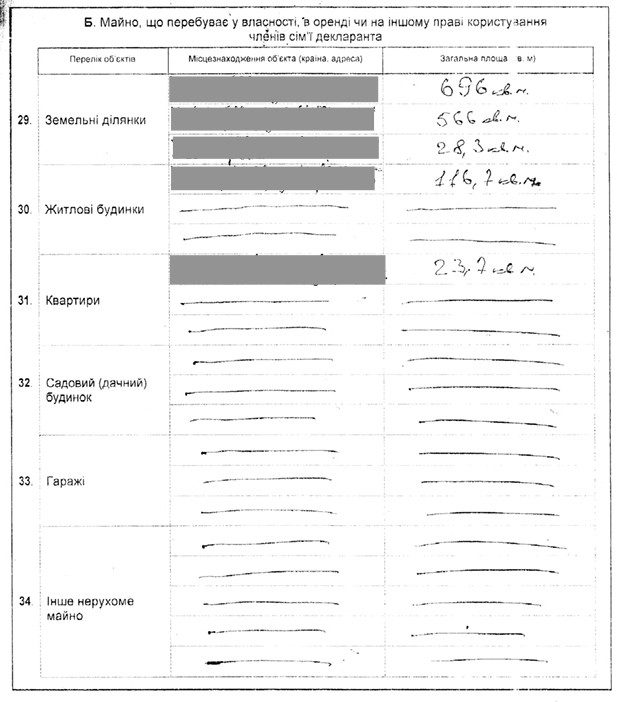 Б. Майно, що перебуває у власності, в оренді чи на іншому праві користування
членів сім'ї декларанта
Перелік об'єктів Місцезнаходження об'єкта (країна, адреса) Загальна площа в. м)
696 кв.м.
29. Земельні ділянки 566 кв.м.
28,3 кв.м.
116,7 кв.м.
30. Житлові будинки
23,7 кв.м.
31. Квартири
32. Садовий (дачний)
будинок
33. Гаражі
34. Інше нерухоме
майно